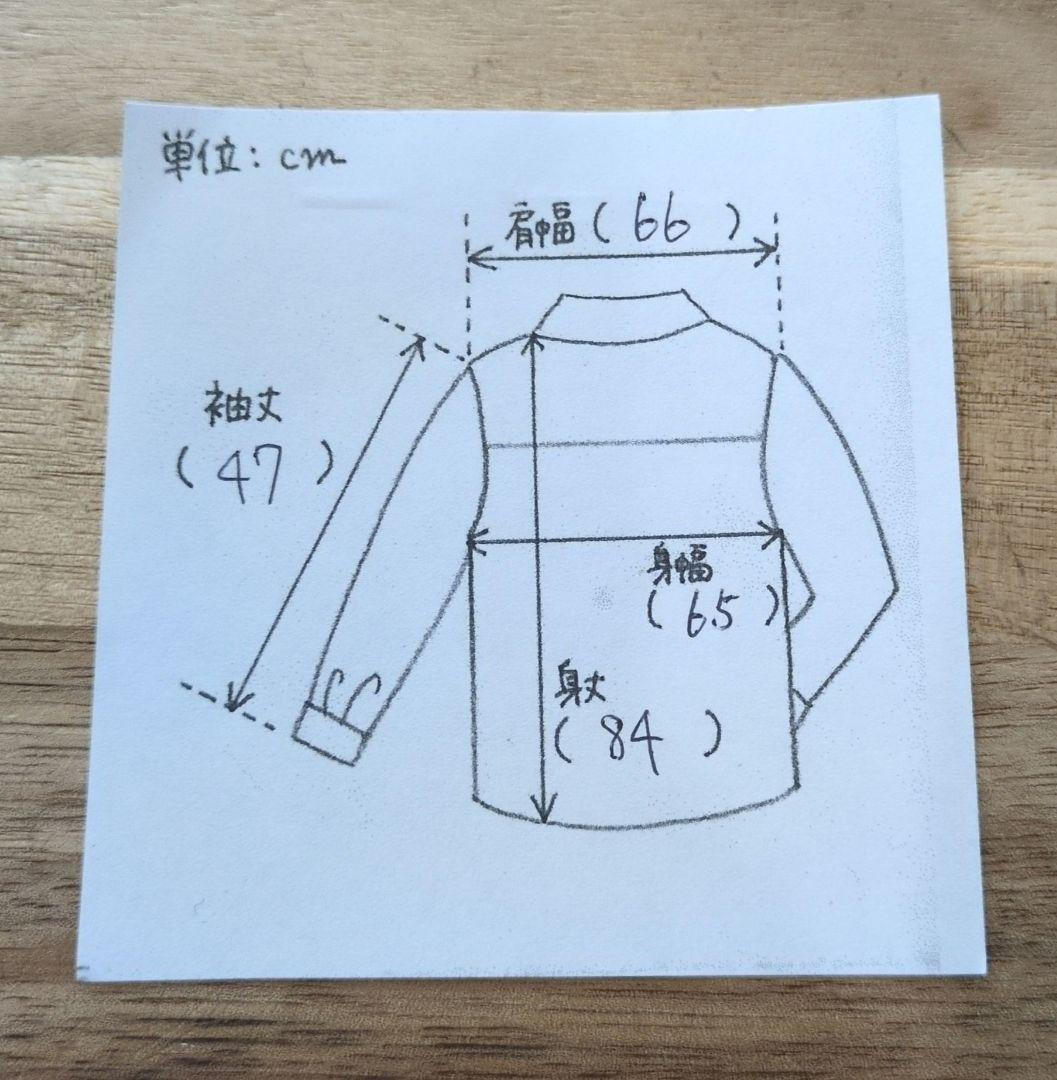 単位：cm
肩幅（66）
袖丈
（47）
身幅
（65）
身丈
（84）